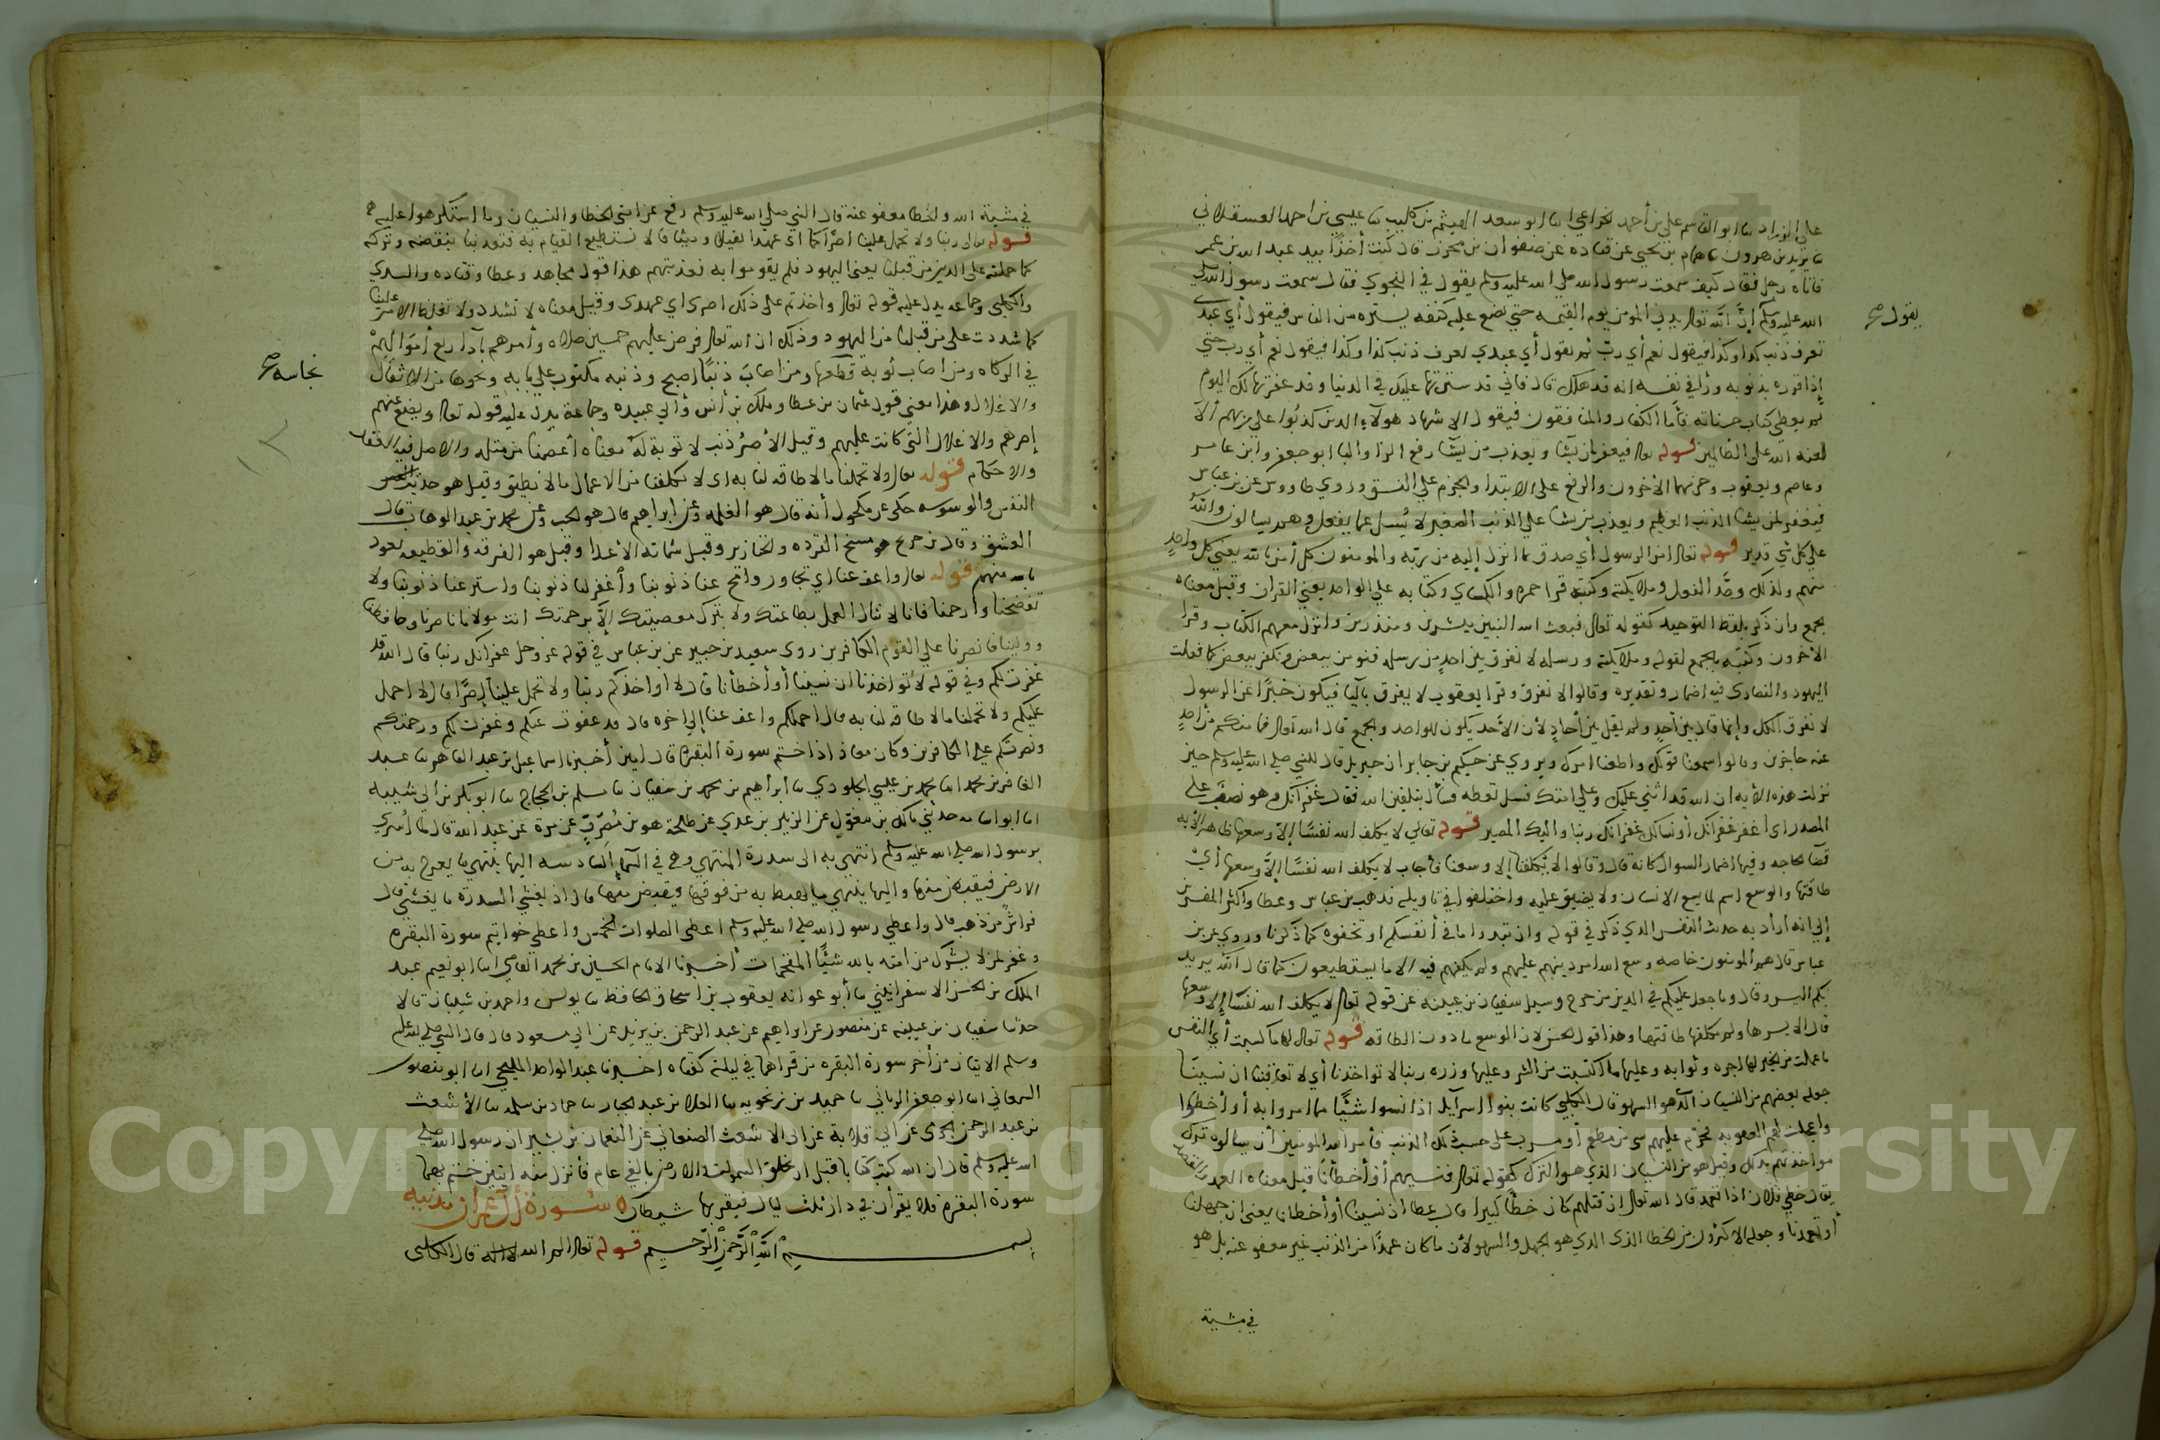 علي البزاد نا ابو القاسم علي بن أحمد الخزاعي انا ابو سعد الهيثم بن كليب نا عيسى بن احمد العسقلاني
نا يزيد بن هرون نا همام بن يحيى عن قتاده عن صفوان بن محرز قال كنت أخذا بيد عبد الله بن عمر
فاتاه رجل فقال كيف سمعت رسول الله صلي الله عليه وسلم يقول في النجوي فقال سمعت رسول الله صلى
الله عليه وسلم إن الله تعالى يدني المومن يوم القيمه حتي يضع عليه كنفه يستره من الناس فيقول أي عبدي
يقول صح
تعرف ذنب كذا وكذا فيقول نعم أي رب ثم يقول أي عبدي تعرف ذنب كذا وكذا فيقول نعم أي رب حتي
إذا قرره بذنوبه وراي في نفسه انه قد هلك قال فاني قد سترتها عليك في الدنيا وقد غفرتها لك اليوم
ثم يعطي كتاب حسناته فأما الكفار والمنافقون فيقول الاشهاد هولاء الذين كذبوا علي ربهم ألا
لعنة الله علي الظالمين قوله تعالى فيغفر لمن يشا ويعذب من يشا رفع الرا والبا ابو جعفر وابن عامر
وعاصم ويعقوب وجزمهما الأخرون والرفع علي الابتدا والجزم علي النسق وروي طاووس عن بن عباس
فيغفر لمن يشا الذنب العظيم ويعذب من يشا علي الذنب الصغير لا يسل عما يفعل وهم يسالون والله
علي كل شي قدير قوله تعالى امن الرسول أي صدق بما انزل إليه من ربه والمومنون كل أمن بالله يعني كل واحد
منهم ولذلك وحد الفعل وملايكته وكتبه قرا حمزه والكساي وكتابه علي الواحد يعني القران وقيل معناه
بجمع وان ذكر بلفظ التوحيد كقوله تعالى فبعث الله النبيين مبشرين ومنذرين وانزل معهم الكتاب وقرا
الأخرون وكتبه بالجمع لقوله وملايكته ورسله لا نفرق بين احد من رسله فنومن ببعض ونكفر ببعض كما فعلت
اليهود والنصاري فيه اضمار وتقديره وقالوا لا نفرق وقرا يعقوب لا يفرق باليا فيكون خبرا عن الرسول
لا نفرق الكل وإنما قال بين أحد ولم يقل بين أحاد لأن الأحد يكون للواحد والجمع قال الله تعالى فما منكم من أحد
عنه حاجزين وقالوا سمعنا قولك واطعنا امرك وروي عن حكيم بن جابر ان جبريل قال للنبي صلى الله عليه وسلم حين
نزلت هذه الأيه ان الله قد اثني عليك وعلي امتك فسل تعطه فسأل بتلقين الله فقال غفرانك وهو نصب علي
المصدر اي اغفر غفرانك أو نسالك غفرانك ربنا واليك المصير قوله تعالي لا يكلف الله نفسا إلا وسعها ظاهر الأيه
قضا الحاجه وفيها اضمار السوال كانه قال وقالوا لا تكلفنا إلا وسعنا فأجاب لا يكلف الله نفسا إلا وسعها أي
طاقتها والوسع اسم لما يسع الانسان ولا يضيق عليه واختلفوا في تاويله فذهب بن عباس وعطا واكثر المفسرين
إلي انه أراد به حديث النفس الذي ذكر في قوله وان تبدوا ما في أنفسكم او تخفوه كما ذكرنا وروي عن بن
عباس قال هم المومنون خاصه وسع الله امر دينهم عليهم ولم يكلفهم فيه إلا ما يستطيعون كما قال الله يريد
بكم اليسر وقال وما جعل عليكم في الدين من حرج وسيل سفيان بن عيينه عن قوله تعالى لا يكلف الله نفسا إلا وسعها
قال الا يسرها ولم يكلفها طاقتها وهذا قول حسن لان الوسع ما دون الطاقه قوله تعالى لها ما كسبت أي النفس
ما عملت من الخير لها اجره وثوابه وعليها ما اكتسبت من الشر وعليها وزره ربنا لا تواخذنا أي لا تعاقبنا ان نسينا
جعله بعضهم من النسيان الذي هو السهو قال الكلبي كانت بنوا اسرآيل اذا نسوا شيا مما امروا به أو أخطوا
عجلت لهم العقوبه فحرم عليهم شي من مطعم أو مشرب علي حسب ذلك الذنب فأمر الله المومنين أن يسالوه ترك
مواخذتهم بذلك وقيل هو من النسيان الذي هو الترك كقوله تعالى فنسيهم أو أخطأنا قيل معناه العمد والقصد
يقال خطي فلان اذا تعمد قال الله تعالى ان قتلهم كان خطأ كبيرا قال عطا ان نسينا أو أخطانا يعني ان جهلنا
أو تعمدنا وجعله الاكثرون من الخطا الذي الذي هو الجهل والسهو لأن ما كان عمدا من الذنب غير معفو عنه بل هو
في مشية
في مشية الله والخطا معفو عنه قال النبي صلي الله عليه وسلم رفع عن امتي الخطا والنسيان وما استكرهوا عليه
قوله تعالى ربنا ولا تحمل علينا اصرا كما اي عهدا ثقيلا وميثاقا لا نستطيع القيام به فتعذبنا بنقضه وتركه
كما حملته علي الذين من قبلنا يعني اليهود فلم يقوموا به فعذبتهم هذا قول مجاهد وعطا وقتاده والسدي
والكلبي وجماعه يدل عليه قوله تعالى واخذتم علي ذلكم اصري اي عهدي وقيل معناه لا تشدد ولا تغلظ الأمر علينا
كما شددت علي من قبلنا من اليهود وذلك ان الله تعالى فرض عليهم خمسين صلاه وأمرهم بأدا ربع أموالهم
في الزكاه ومن اصاب ثوبه قطعها ومن اصاب ذنبا اصبح وذنبه مكتوب علي بابه ونحوها من الاثقال
نجاسه صح
والاغلال وهذا معني قول عثمان بن عطا وملك بن أنس وأبي عبيده وجماعة يدل عليه قوله تعالى ويضع عنهم
إصرهم والاغلال التي كانت عليهم وقيل الأصر ذنب لا توبة له معناه أعصمنا من مثله والاصل فيه العقد
والاحكام قوله تعالى ولا تحملنا ما لا طاقه لنا به اي لا تكلفنا من الاعمال ما لا نطيق وقيل هو حديث
النفس والوسوسه حكي عن مكحول أنه قال هو الغلمه وعن ابراهيم قال هو الحب وعن محمد بن عبد الوهاب قال
العشق وقال بن جريج هو مسخ القرده والخنازير وقيل شماتة الأعدا وقيل هو الفرقه والقطيعه نعوذ
بالله منهم قوله تعالى واعف عنا اي تجاوز وامح عنا ذنوبنا واغفر لنا ذنوبنا واستر عنا ذنوبنا ولا
تفضحنا وارحمنا فاننا لا ننال العمل بطاعتك ولا نترك معصيتك إلا برحمتك انت مولانا ناصرنا وحافظنا
وولينا فانصرنا علي القوم الكافرين روي سعيد بن جبير عن بن عباس في قوله عز وجل غفرانك ربنا قال الله قد
غفرت لكم وفي قوله لا تواخذنا ان نسينا أو أخطأنا قال لا اواخذكم ربنا ولا تحمل علينا إصرا قال لا احمل
عليكم ولا تحملنا ما لا طاقه لنا به قال لا احملكم واعف عنا إلي اخره قال قد عفوت عنكم وغفرت لكم ورحمتكم
ونصرتكم علي الكافرين وكان معاذ اذا ختم سورة البقرة قال امين أخبرنا اسماعيل بن عبد القاهر نا عبد
الغافر بن محمد انا محمد بن عيسي الجلودي نا أبراهيم بن محمد بن سفيان نا مسلم بن الحجاج نا ابو بكر بن أبي شيبه
انا ابو اسامه حدثني مالك بن مغول عن الزبير بن عدي عن طلحة هو بن مصرف عن مرة عن عبد الله قال لما أسري
برسول الله صلي الله عليه وسلم انتهي به الى سدرة المنتهي وهي في السما السادسه اليها ينتهي ما يعرج به من
الارض فيقبض منها واليها ينتهي ما يهبط به من فوقها فيقبض منها قال اذ يغشي السدرة ما يغشي قال
فراش من ذهب قال واعطي رسول الله صلي الله عليه وسلم اعطي الصلوات الخمس واعطي خواتيم سورة البقره
وغفر لمن لا يشرك من امته بالله شيا المقحمات أخبرنا الامام الحسين بن محمد القاضي انا ابو نعيم عبد
الملك بن الحسن الاسفرايني نا أبو عوانه يعقوب بن اسحاق الحافظ نا يونس واحمد بن شيبان قالا
حدثنا سفيان بن عيينه عن منصور عن ابراهيم عن عبد الرحمن بن يزيد عن ابي مسعود قال قال النبي صلى الله عليه
وسلم الايتان من أخر سورة البقره من قراهما في ليلة كفتاه اخبرنا عبد الواحد المليحي انا ابو منصور
السمعاني انا ابو جعفر الرياني نا حميد بن زنجويه نا العلا بن عبد الجبار نا حماد بن سلمه نا الأشعث
بن عبد الرحمن الجرمي عن ابي قلابة عن ابي الاشعث الصنعاني عن النعمان بن بشير ان رسول الله صلي
الله عليه وسلم قال ان الله كتب كتابا قبل ان يخلق السموات والارض بالفي عام فأنزل منه ايتين ختم بهما
سورة البقرة فلا يقرأن في دار ثلث ليال فيقربها شيطان ه سورة آل عمران مدنيه
بسم الله الرحمن الرحيم قوله تعالى الم الله لا اله قال الكلبي
Copyright © King Saud University